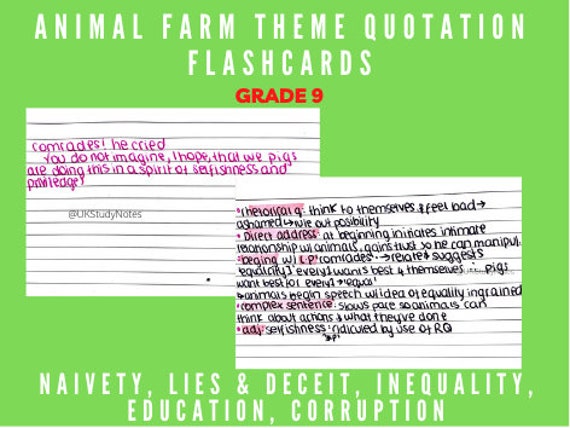 ANIMAL FARM THEME QUOTATION
FLASHCARDS
GRADE 9
comrades! he cried
You do not imagine, I hope, that we pigs
are doing this in a spirit of selfishness and
priviledge?
@UKStudyNotes
•rhetorical q: think to themselves & feel bad→
ashamed↳rule out possibility
• Direct address: at beginning initiates intimate
relationship w/ animals, gains trust so he can manipul.
•begins w/ 'comrades' → relate & suggests
equality
want best for every1 → equal
↳animals begin speech w/ idea of equality ingrained
•complex sentence: slows pace so animals can
think about actions & what they've done
•adj: selfishness: ridiculed by use of RQ
NAIVETY, LIES & DECEIT, INEQUALITY,
EDUCATION, CORRUPTION